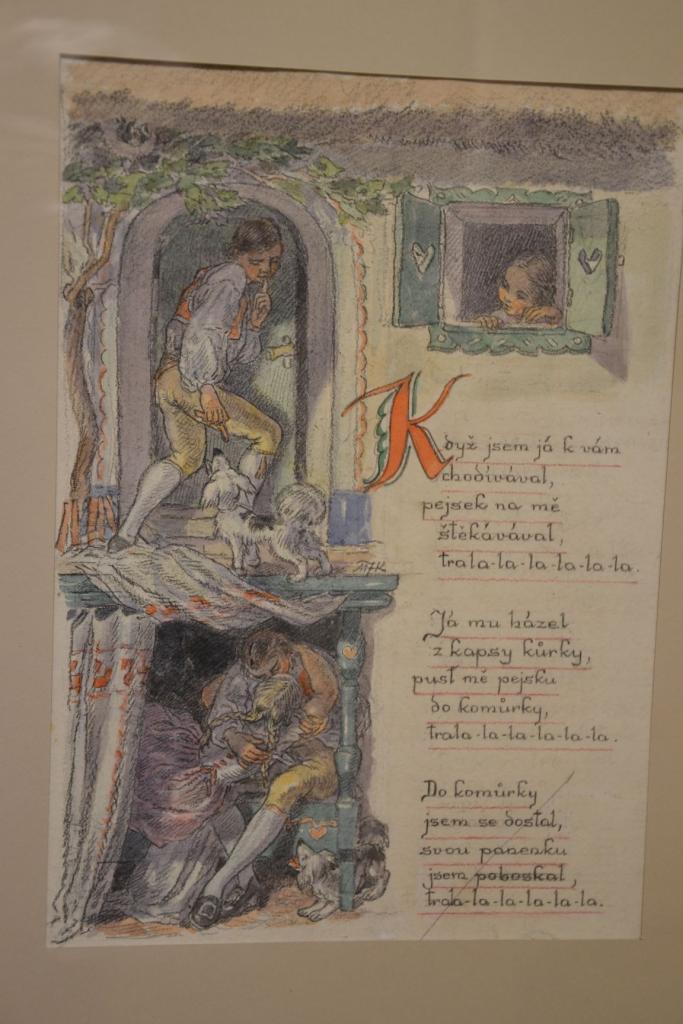 Když jsem já k vám
chodívával,
pejsek na mě
štěkávával,
trala-la-la-la-la-la.
Já mu házel
z kapsy kůrky,
pusť mě pejsku
do komůrky,
trala-la-la-la-la-la.
Do komůrky
jsem se dostal,
svou panenku
jsem poboskal,
trala-la-la-la-la-la.